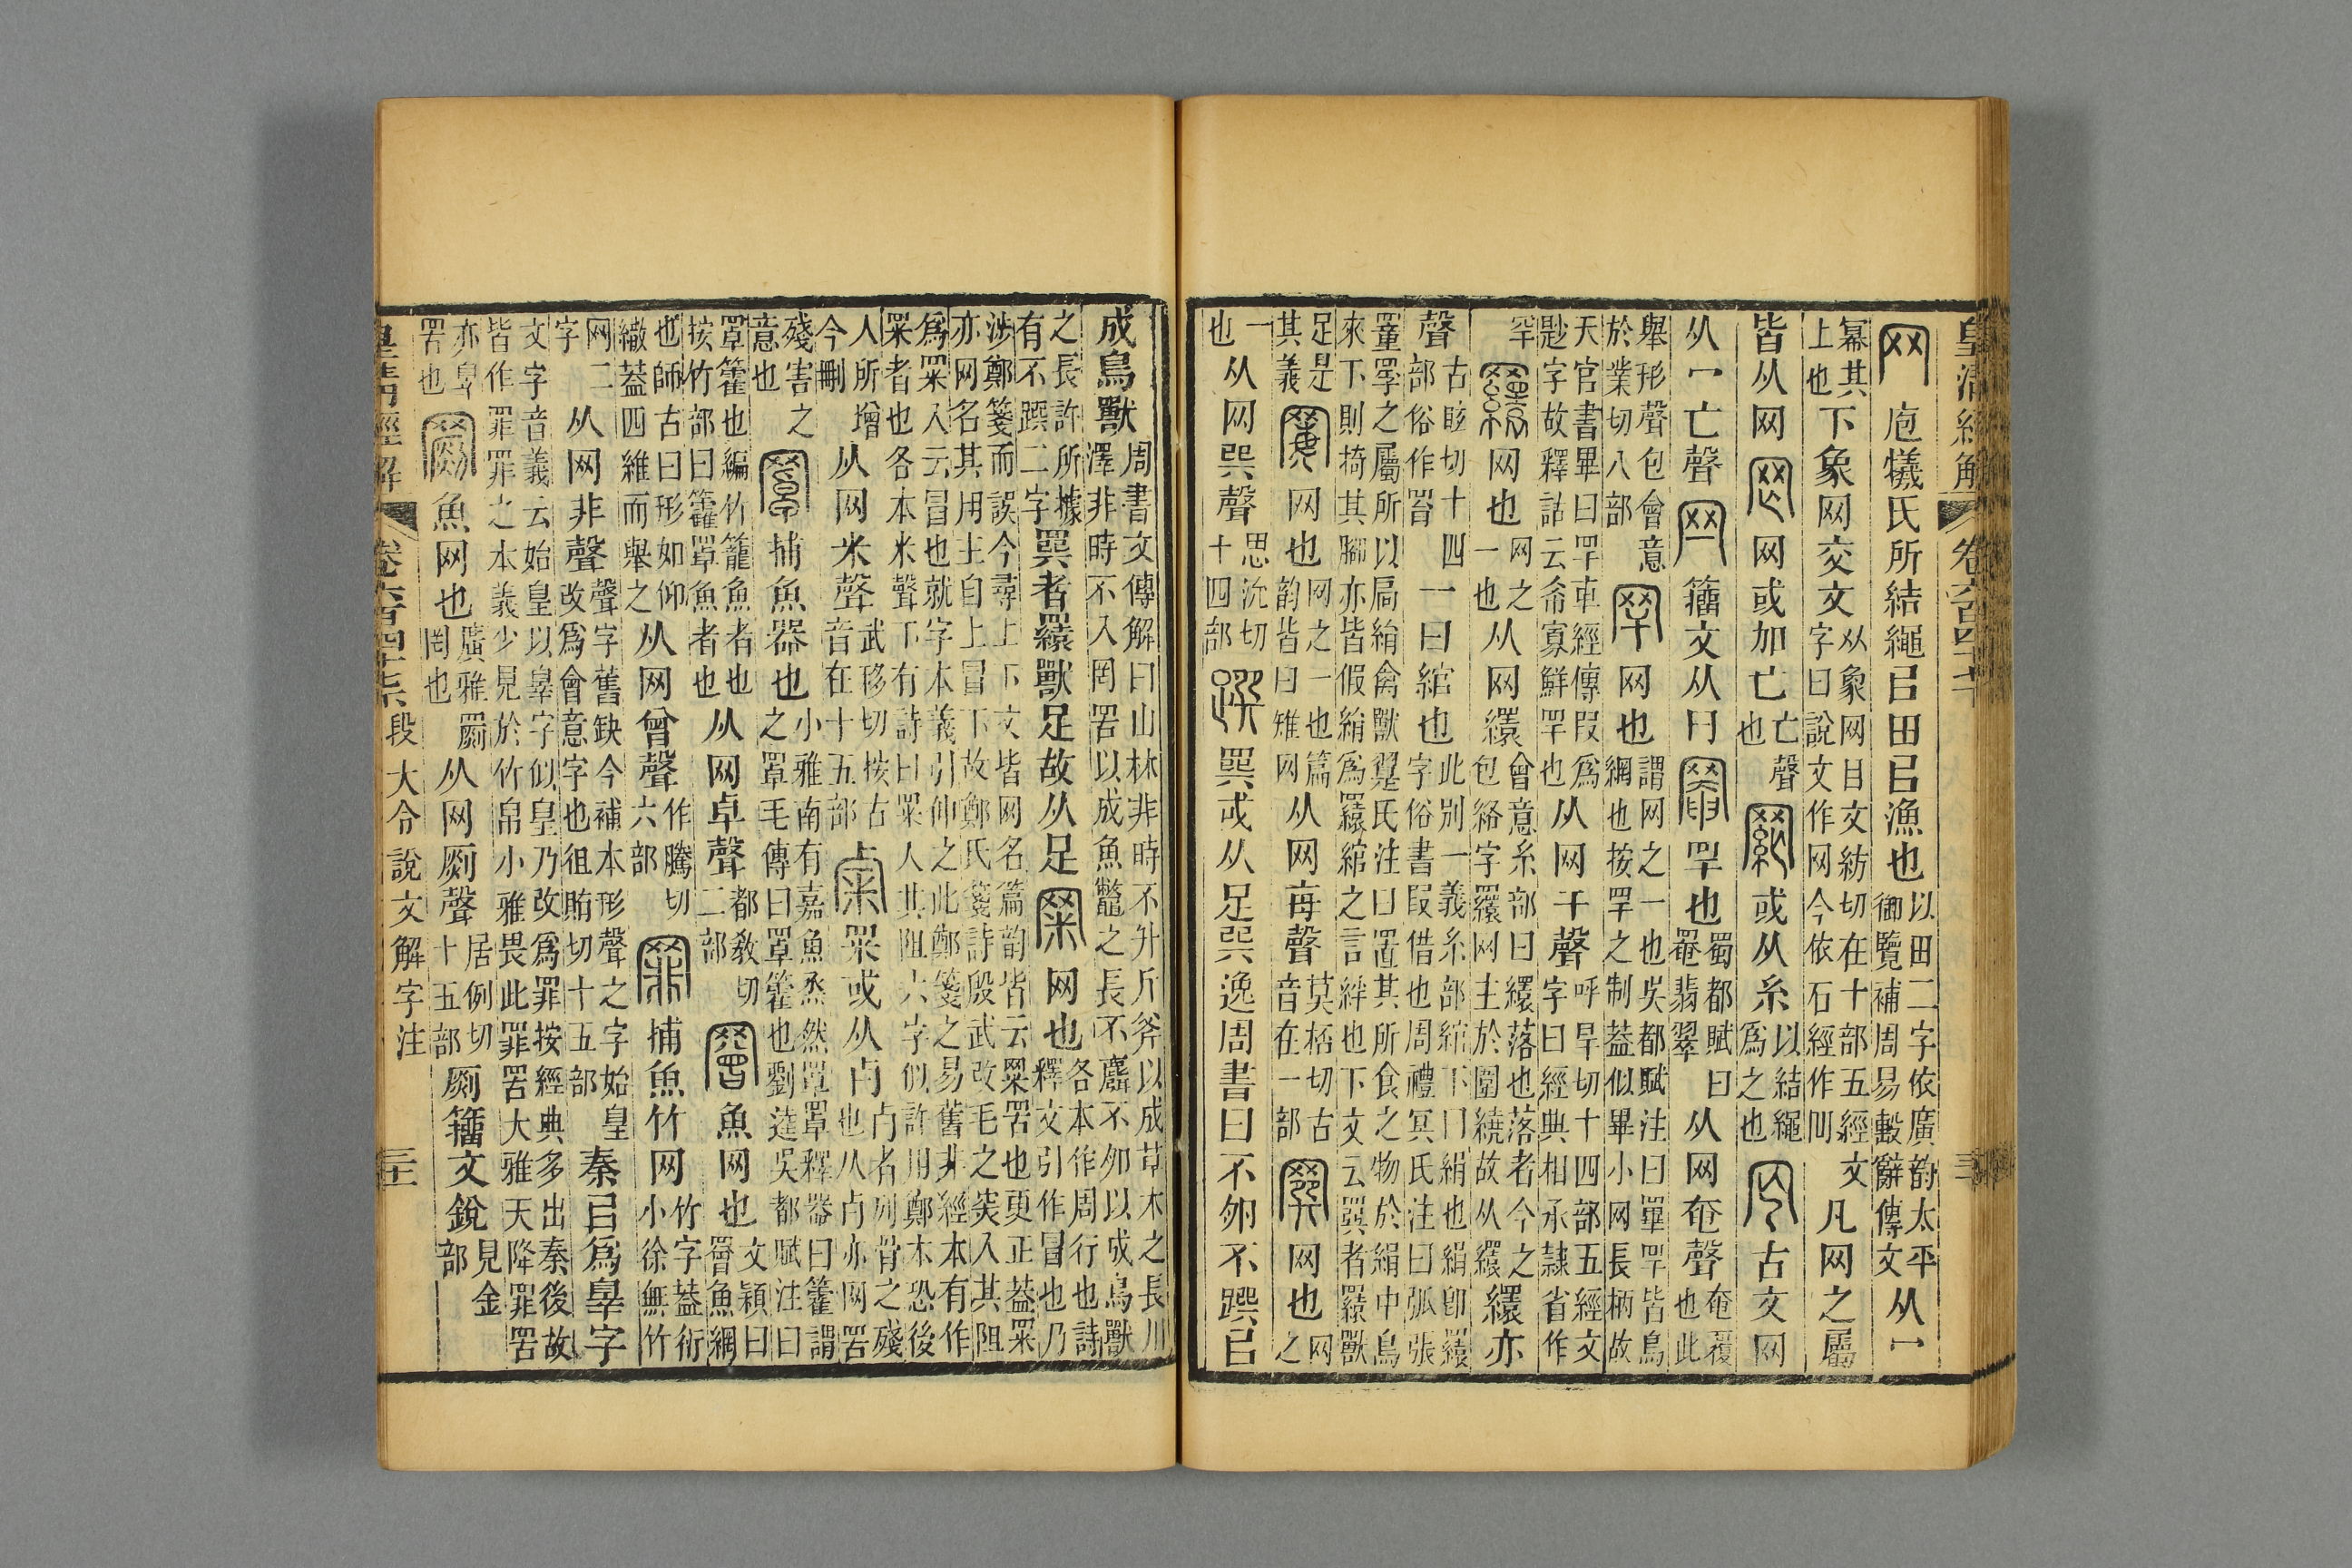 皇清經解 卷六百四十七 三十
网 庖犧氏所結繩㠯田㠯漁也 以田二字依廣韵太平 御覽補周易毄辭傳文 从冖
冪其 上也 下象网交文 从象网目文紡切在十部五經文 字曰說文作网今依石經作 凡网之屬
皆从网 网或加亡 亡聲 也 或从糸 以結繩 爲之也 古文网
从冖亡聲 籒文从冃 罕也 蜀都賦曰 罨翡翠 从网奄聲 奄覆 也此
舉形聲包會意 於業切八部 网也 謂网之一也吳都賦注曰罼罕皆鳥 網也按罕之制葢似畢小网長柄故
天官書畢曰罕車經傳叚爲 尟字故釋詁云希寡鮮罕也 从网干聲 呼旱切十四部五經文 字曰經典相承隸省作
罕 网也 网之 一也 从网繯 會意糸部曰繯落也落者今之 包絡字羉网主於圍繞故从繯 繯亦
聲 古眩切十四 部俗作罥 一曰綰也 此別一義糸部綰下曰絹也絹卽羉 字俗書叚借也周禮冥氏注曰弧張
罿罦之屬所以扃絹禽獸翨氏注曰置其所食之物於絹中鳥 來下則掎其腳亦皆假絹爲羉綰之言絆也下文云䍻者羉獸
足是 其義 网也 网之一也篇 韵皆曰雉网 从网每聲 莫桮切古 音在一部 网也 网 之
一 也 从网巽聲 思沇切 十四部 䍻或从足巽逸周書曰不卵不䠣㠯
成鳥獸 周書文傳解曰山林非時不升斤斧以成草木之長川 澤非時不入罔罟以成魚鼈之長不麛不卵以成鳥獸
之長許所據 有不䠣二字 䍻者羉獸足故从足 网也 各本作周行也詩 釋文引作冒也乃
涉鄭箋而誤今尋上下文皆网名篇韵皆云罙罟也更正葢罙 亦网名其用主自上冒下故鄭氏箋詩殷武改毛之突入其阻
爲罙入云冒也就字本義引伸之此鄭箋之易舊非經本有作 罙者也各本米聲下有詩曰罙入其阻六字似許用鄭本恐後
人所增 今刪 从网米聲 武移切按古 音在十五部 罙或从歺 歺者列骨之殘 也从歺亦网罟
殘害之 意也 捕魚器也 小雅南有嘉魚烝然罩罩釋器曰籗謂 之罩毛傳曰罩籗也劉逵吳都賦注曰
罩籗也編竹籠魚者也 按竹部曰籱罩魚者也 从网卓聲 都敎切 二部 魚网也 文穎曰 罾魚網
也師古曰形如仰 繖葢四維而舉之 从网曾聲 作騰切 六部 捕魚竹网 竹字葢衍 小徐無竹
网二 字 从网非聲 聲字舊缺今補本形聲之字始皇 改爲會意字也徂賄切十五部 秦㠯爲辠字
文字音義云始皇以辠字似皇乃改爲罪按經典多出秦後故 皆作罪罪之本義少見於竹帛小雅畏此罪罟大雅天降罪罟
亦辠 罟也 魚网也 廣雅罽 罔也 从网㓹聲 居例切 十五部 㓹籒文銳 見金 部
皇清經解 卷六百四十七 段大令說文解字注 三十一